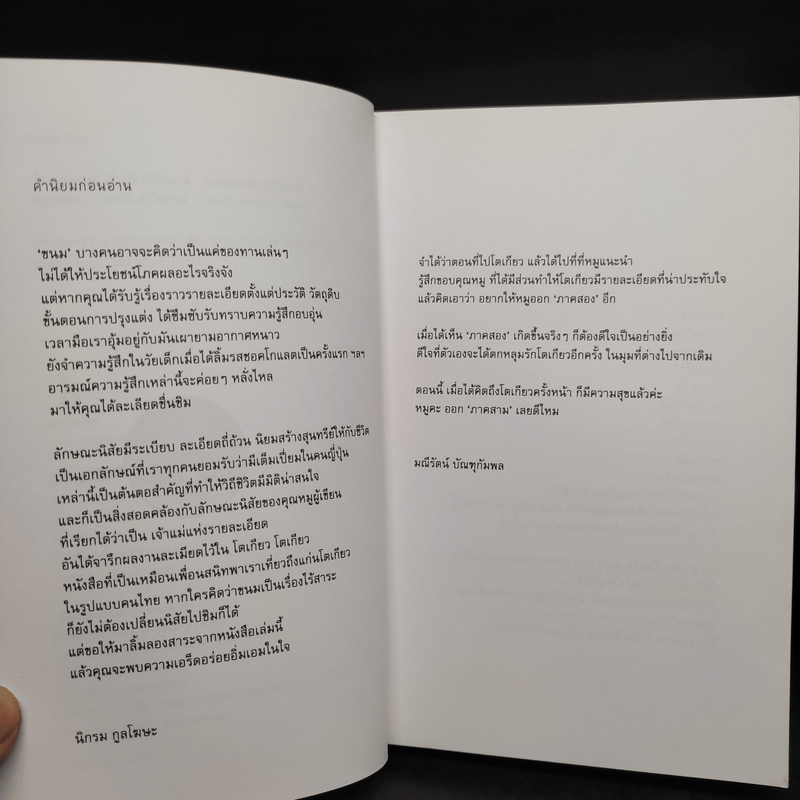 คำนิยมก่อนอ่าน
‘ขนม’ บางคนอาจจะคิดว่าเป็นแค่ของทานเล่นๆ
ไม่ได้ให้ประโยชน์โภคผลอะไรจริงจัง
แต่หากคุณได้รับรู้เรื่องราวรายละเอียดตั้งแต่ประวัติ วัตถุดิบ
ขั้นตอนการปรุงแต่ง ได้ซึมซับรับทราบความรู้สึกอบอุ่น
เวลามือเราอุ้มอยู่กับมันเผายามอากาศหนาว
ยังจำความรู้สึกในวัยเด็กเมื่อได้ลิ้มรสชอคโกแลตเป็นครั้งแรก ฯลฯ
อารมณ์ความรู้สึกเหล่านี้จะค่อยๆ หลั่งไหล
มาให้คุณได้ละเลียดชื่นชิม
ลักษณะนิสัยมีระเบียบ ละเอียดถี่ถ้วน นิยมสร้างสุนทรีย์ให้กับชีวิต
เป็นเอกลักษณ์ที่เราทุกคนยอมรับว่ามีเต็มเปี่ยมในคนญี่ปุ่น
เหล่านี้เป็นต้นตอสำคัญที่ทำให้วิถีชีวิตมีมิติน่าสนใจ
และก็เป็นสิ่งสอดคล้องกับลักษณะนิสัยของคุณหมูผู้เขียน
ที่เรียกได้ว่าเป็น เจ้าแม่แห่งรายละเอียด
อันได้จารึกผลงานละเมียดไว้ใน โตเกียว โตเกี๋ยว
หนังสือที่เป็นเหมือนเพื่อนสนิทพาเราเที่ยวถึงแก่นโตเกียว
ในรูปแบบคนไทย หากใครคิดว่าขนมเป็นเรื่องไร้สาระ
ก็ยังไม่ต้องเปลี่ยนนิสัยไปชิมก็ได้
แต่ขอให้มาลิ้มลองสาระจากหนังสือเล่มนี้
แล้วคุณจะพบความเอร็ดอร่อยอิ่มเอมในใจ
นิกรม กูลโฆษะ
จำได้ว่าตอนที่ไปโตเกียว แล้วได้ไปที่ที่หมูแนะนำ
รู้สึกขอบคุณหมู ที่ได้มีส่วนทำให้โตเกียวมีรายละเอียดที่น่าประทับใจ
แล้วคิดเอาว่า อยากให้หมูออก ‘ภาคสอง’ อีก
เมื่อได้เห็น ‘ภาคสอง’ เกิดขึ้นจริงๆ ก็ต้องดีใจเป็นอย่างยิ่ง
ดีใจที่ตัวเองจะได้ตกหลุมรักโตเกียวอีกครั้ง ในมุมที่ต่างไปจากเดิม
ตอนนี้ เมื่อได้คิดถึงโตเกียวครั้งหน้า ก็มีความสุขแล้วค่ะ
หมูคะ ออก ‘ภาคสาม’ เลยดีไหม
มณีรัตน์ บัณฑุกัมพล